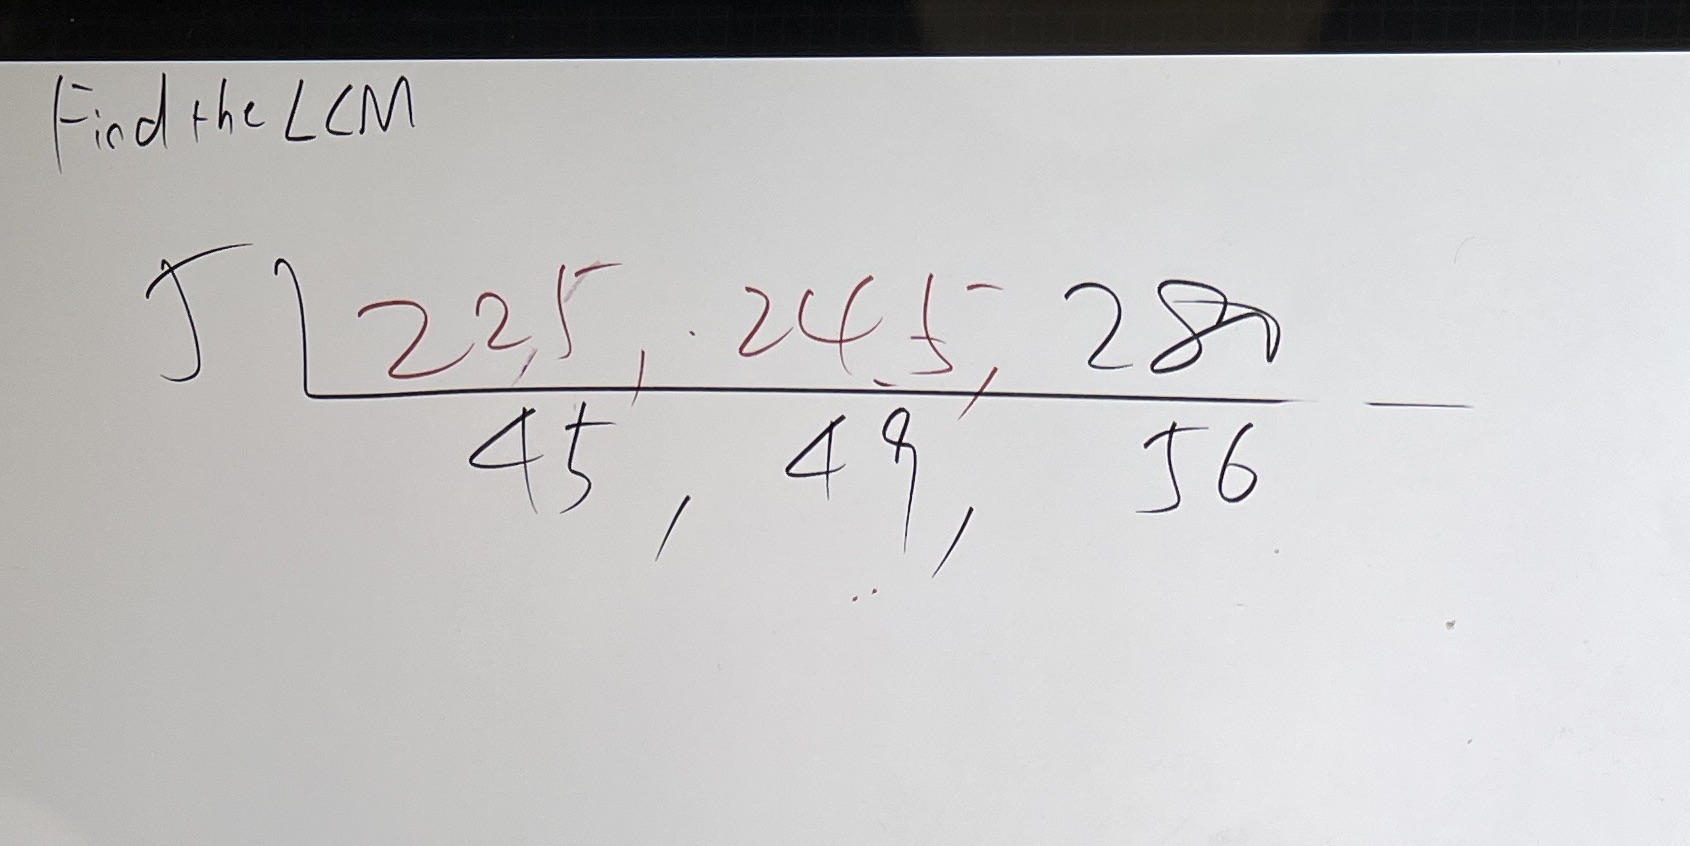 Find the LCM
5 225, 245, 280
45, 49, 56